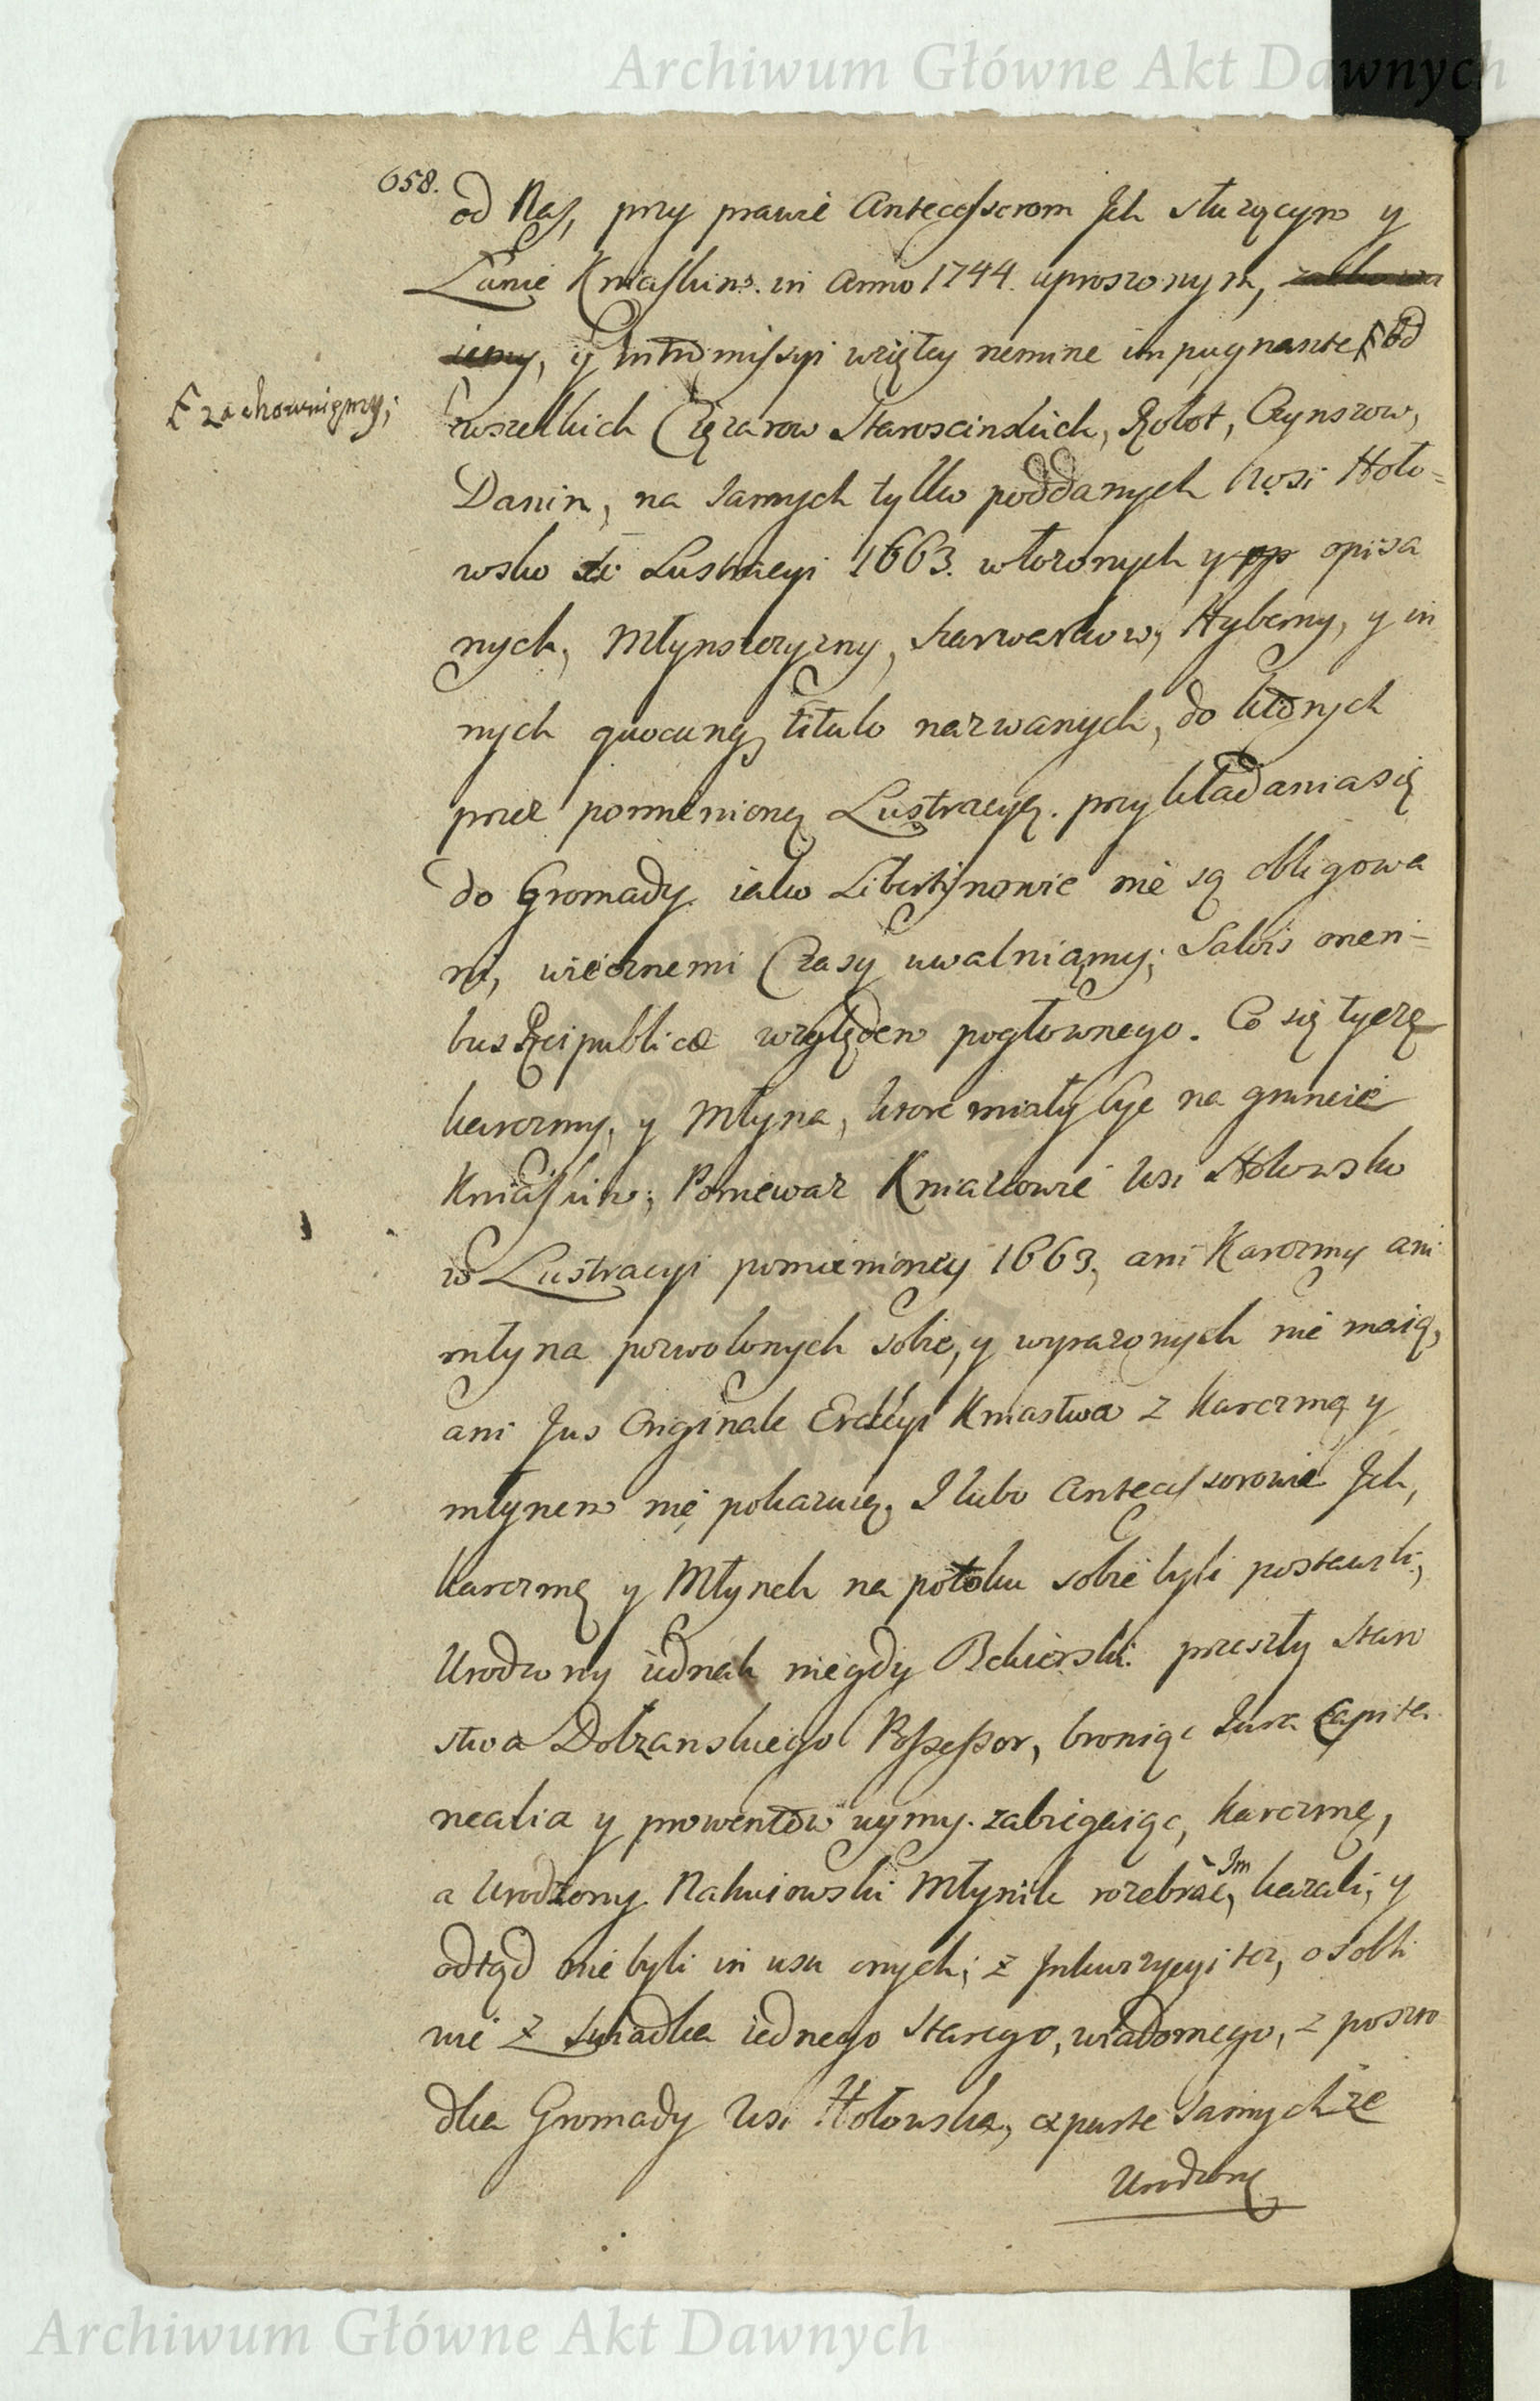 Archiwum Główne Akt Dawnych
658.
od Nas, przy prawie Antecessorom Jch służącym y
Łanie Kniaskim. in Anno 1744. uproszonym, zachowu
iemy, y Intromissyi wziętey nemine impugnante Ƒ Od
Ƒ zachowuięmy;
wszelkich Cięzarow Staroscinskich, Robot, Czynszow,
Danin, na samych tylko poddanych Wsi Hoło=
wsko w Lustracyi 1663. włozonych y opisa
nych, Młynszczyzny, szarwarkow, Hyberny, y in
nych quocunq titulo nazwanych, do ktorych
przez pomienioną Lustracyą. przykładania się
do Gromady iako Libertynowie nie są obligowa
ni, wiecznemi Czasy uwalniąmy; Salvis oneri=
bus Reipublicæ względem pogłownego. Co się tycze
karczmy, y Młyna, ktore miały byc na gruncie
Kniaskim; Poniewaz Kniaziowie Wsi Hołowsko
w Lustracyi pomienioney 1663, ani Karczmy ani
młyna pozwolonych sobie, y wyrazonych nie maią,
ani Jus Originale Erekcyi Kniastwa z karczmą y
młynem nie pokazuią. I lubo Antecessorowie Jch,
karczmę y Młynek na potoku sobie byli postawili,
Urodzony iednak niegdy Bekierski przeszły Staro
stwa Dolzanskiego Possessor, broniąc Jura Capita
nealia y prowentow uymy. zabiegaiąc, karczmę,
a Urodzony Nakuiowski Młynik rozebrac, Im kazali, y
odtąd nie byli in usu onych; z Jnkwizycyi tez, osobli
wie z swiadka iednego starego, wiadomego, z poszro
dka Gromady Wsi Hołowska, ex parte samychze
Urodzony
Archiwum Główne Akt Dawnych